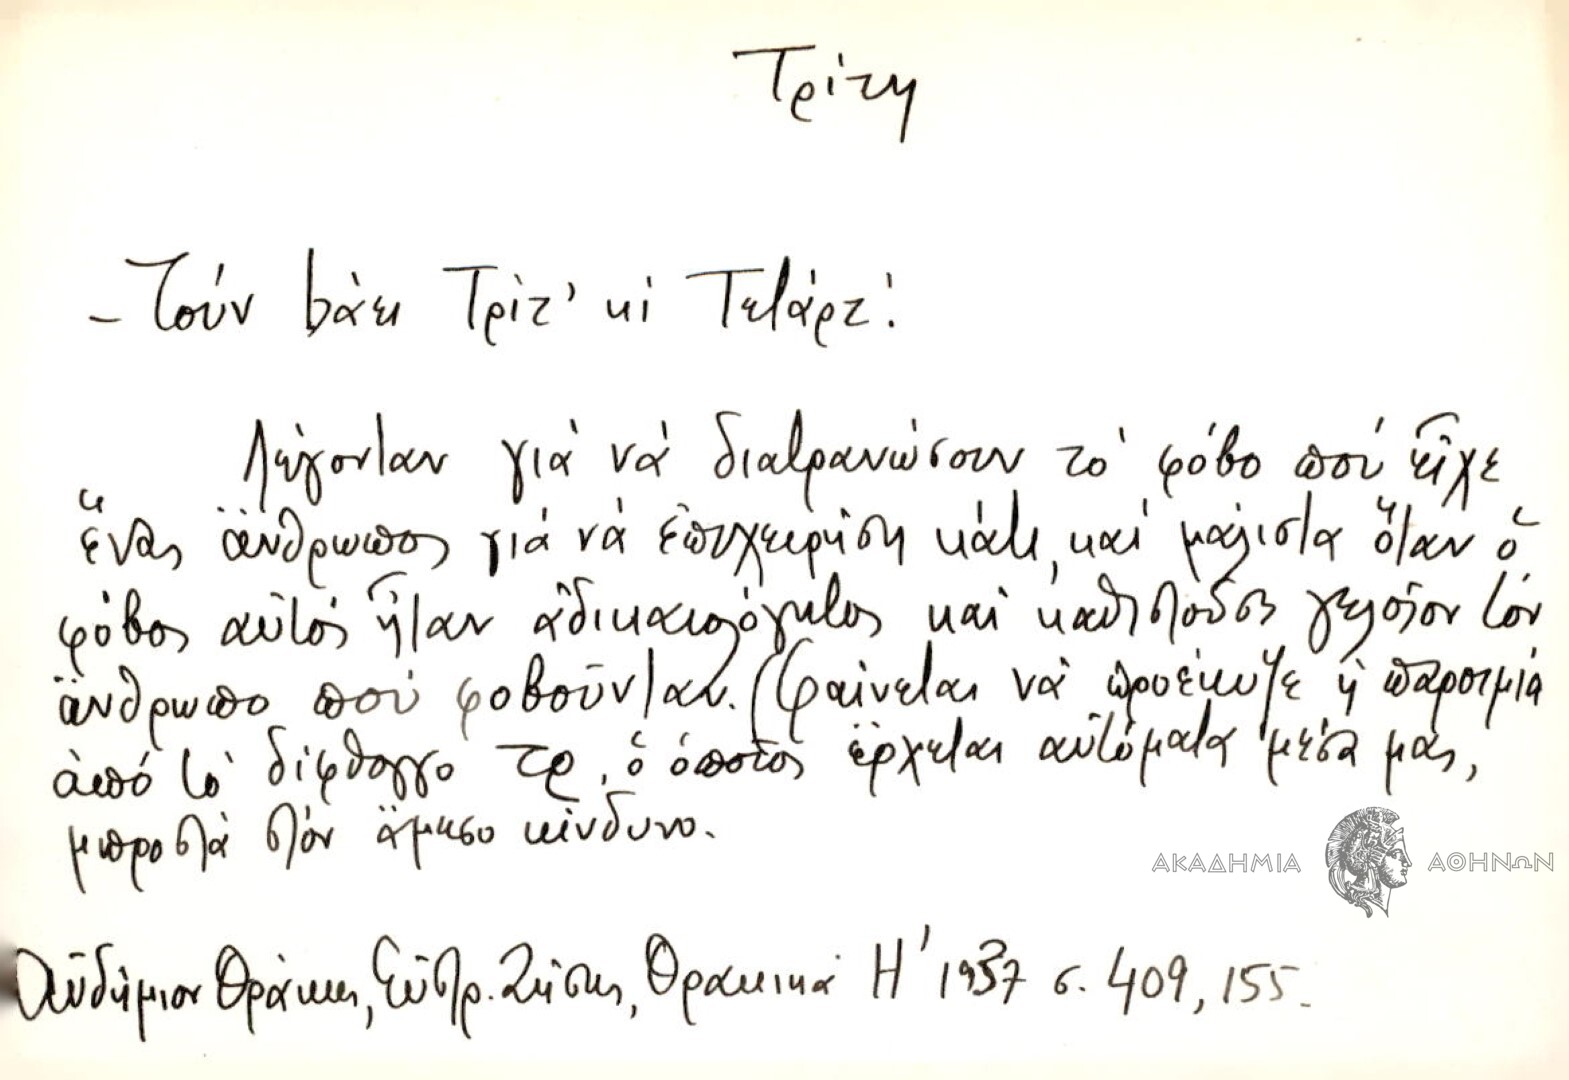 Τρίτη
- Τούν βάει Τρίτ' κί Τετάρτ'.
Λέγονταν γιά νά διατρανώσουν τό φόβο πού εἶχε
ἕνας ἄνθρωπος γιά νά ἐπιχειρήση κάτι, καί μάλιστα ὅταν ὁ
φόβος αὐτός ἦταν ἀδικαιολόγητος καί καθιστοῦσε γελοῖον τόν
ἄνθρωπο πού φοβοῦνταν. (Φαίνεται νά προέκυψε ἡ παροιμία
ἀπό τό δίφθογγο τρ, ὁ ὁποῖος ἔρχεται αὐτόματα μέσα μας,
μπροστά στόν ἄμεσο κίνδυνο.
ΑΚΑΔΗΜΙΑ ΑΘΗΝΩΝ
Θράκης, Εὐστρ. Ζήσης, Θρακικά Η' 1937 σ. 409, 155.